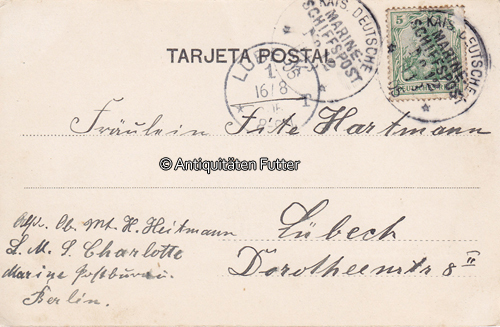 TARJETA POSTAL
KAIS. DEUTSCHE
MARINE-
SCHIFFSPOST
KAIS. DEUTSCHE
MARINE-
SCHIFFSPOST
5
16/8
Fräulein Fite Hartmann
© Antiquitäten Futter
Lübeck
Dorotheenstr 8 II
Ob. Mt. H. Heitmann
S. M. S. Charlotte
Marine Postbureau
Berlin.